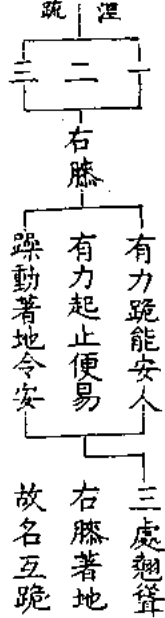 涅疏
一
二
三
右膝
有力跪能安人
有力起止便易
躁動著地令安
三處翹聳
右膝著地
故名互跪